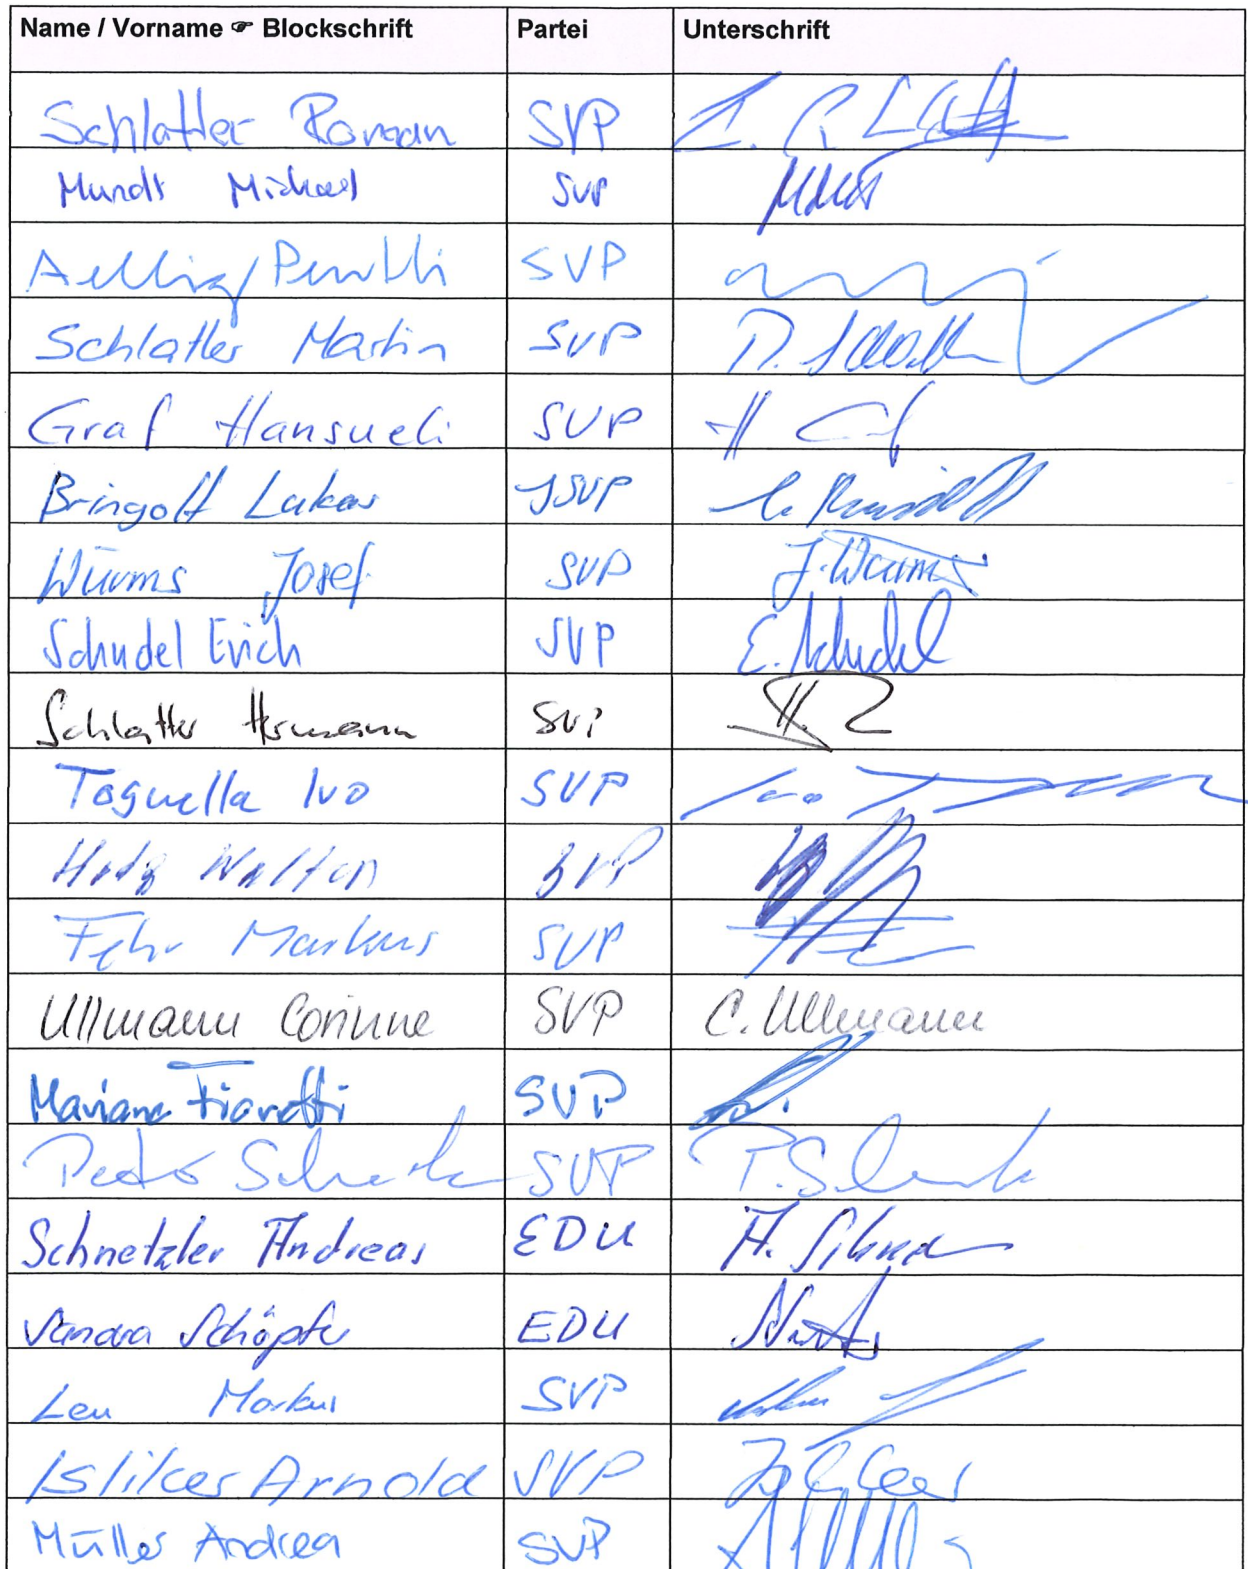 Name / Vorname ☞ Blockschrift Partei Unterschrift
Schlatter Roman SVP
Mundt Michael SVP
Aellig Pentti SVP
Schlatter Martin SVP
Graf Hansueli SVP
Bringolf Lukas JSVP
Würms Josef SVP J. Würms
Schudel Erich SVP E. Schudel
Schlatter Hermann SVP
Tognella Ivo SVP
Hotz Walter SVP
Fehr Markus SVP
Ullmann Corinne SVP C. Ullmann
Mariano Fioretti SVP
Pedro Schenk SVP P. Schenk
Schnetzler Andreas EDU
Sandra Schöpfer EDU
Leu Markus SVP
Isliker Arnold SVP
Müller Andrea SVP